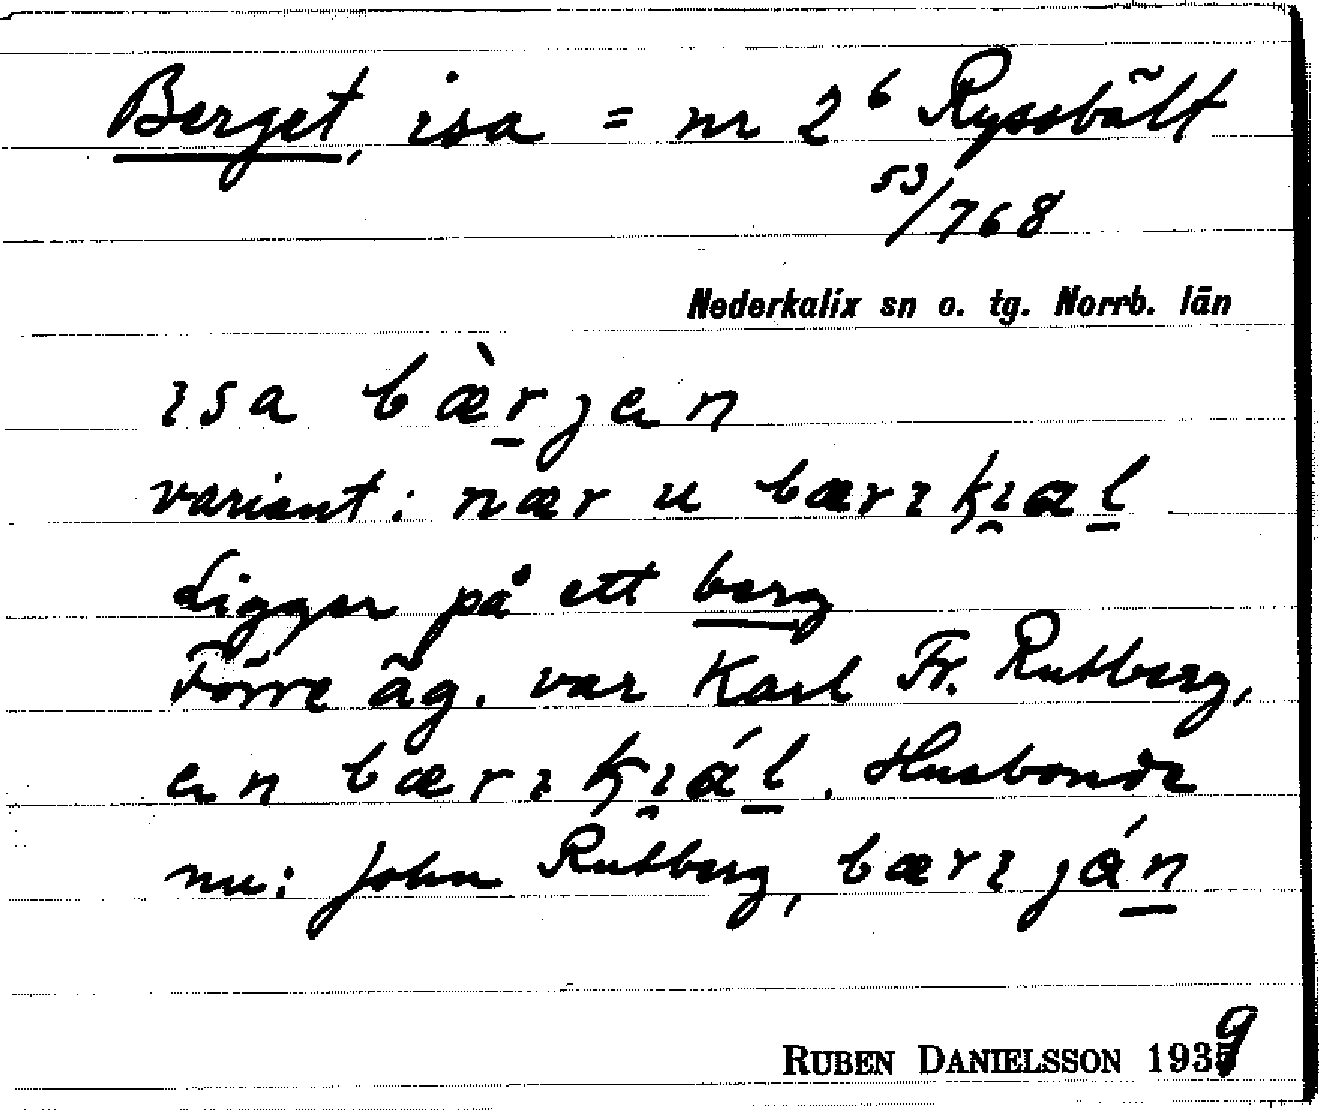 Berget, isa = nr 2⁶ Ryssbält
53/768
Nederkalix sn o. tg. Norrb. län
ɪsa bæ̀r̲jen
variant: nær u bærɪkɪ̯al̲
Ligger på ett berg
Förre äg. var Karl Fr. Rutberg,
en bærɪkɪ̯ál̲. Husbonde
nu: John Rutberg, bærɪ ján̲
RUBEN DANIELSSON 1939